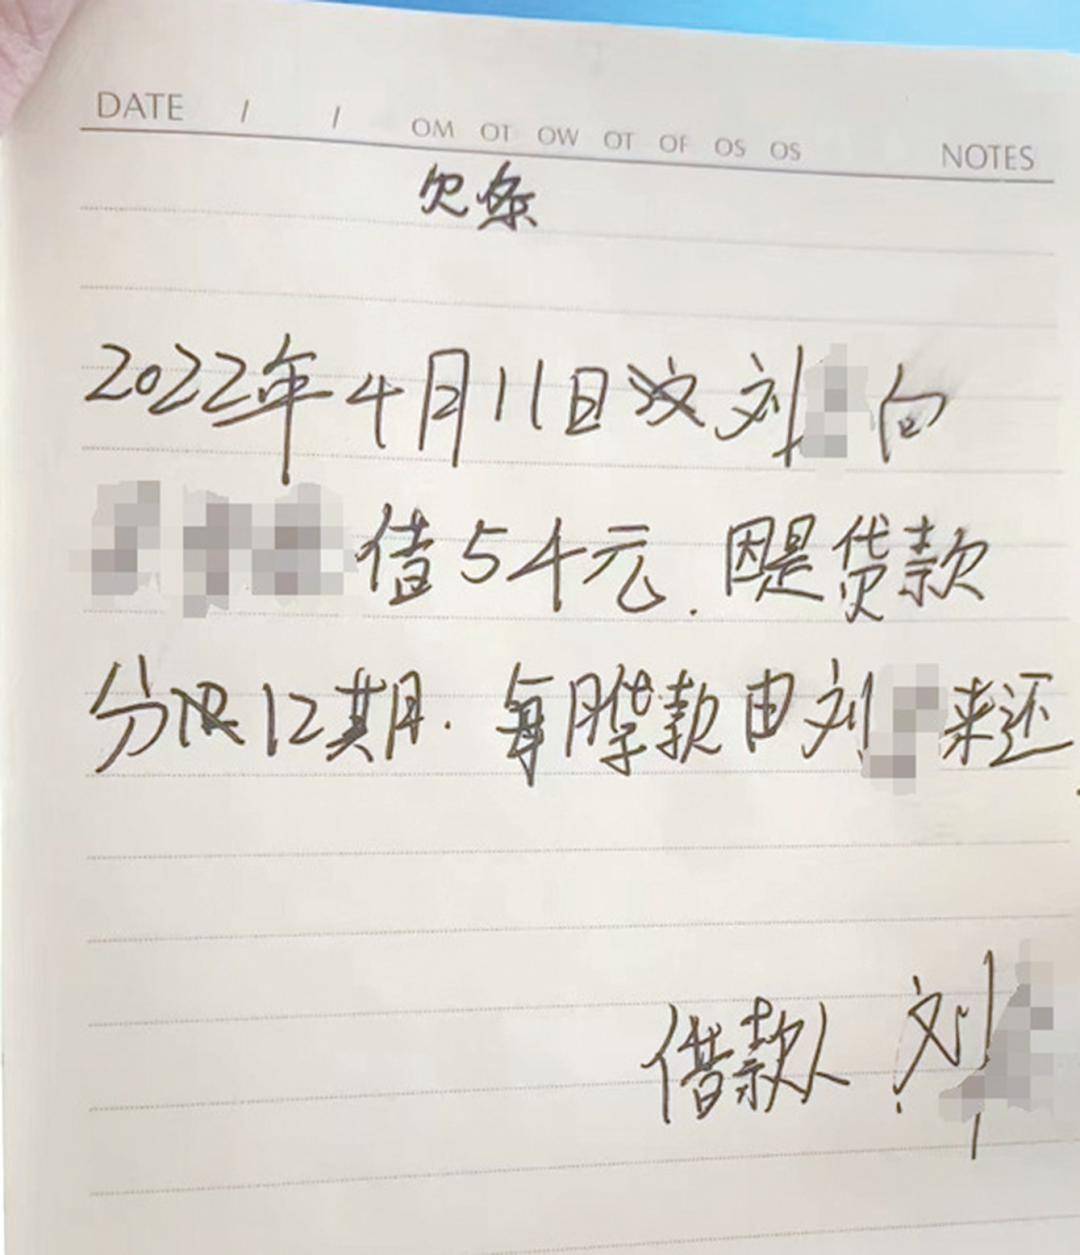 DATE / / OM OT OW OT OF OS OS NOTES
欠条
2022年4月11日 刘 向
借5千元.因是贷款
分 12期.每月贷款由刘 来还.
借款人 刘